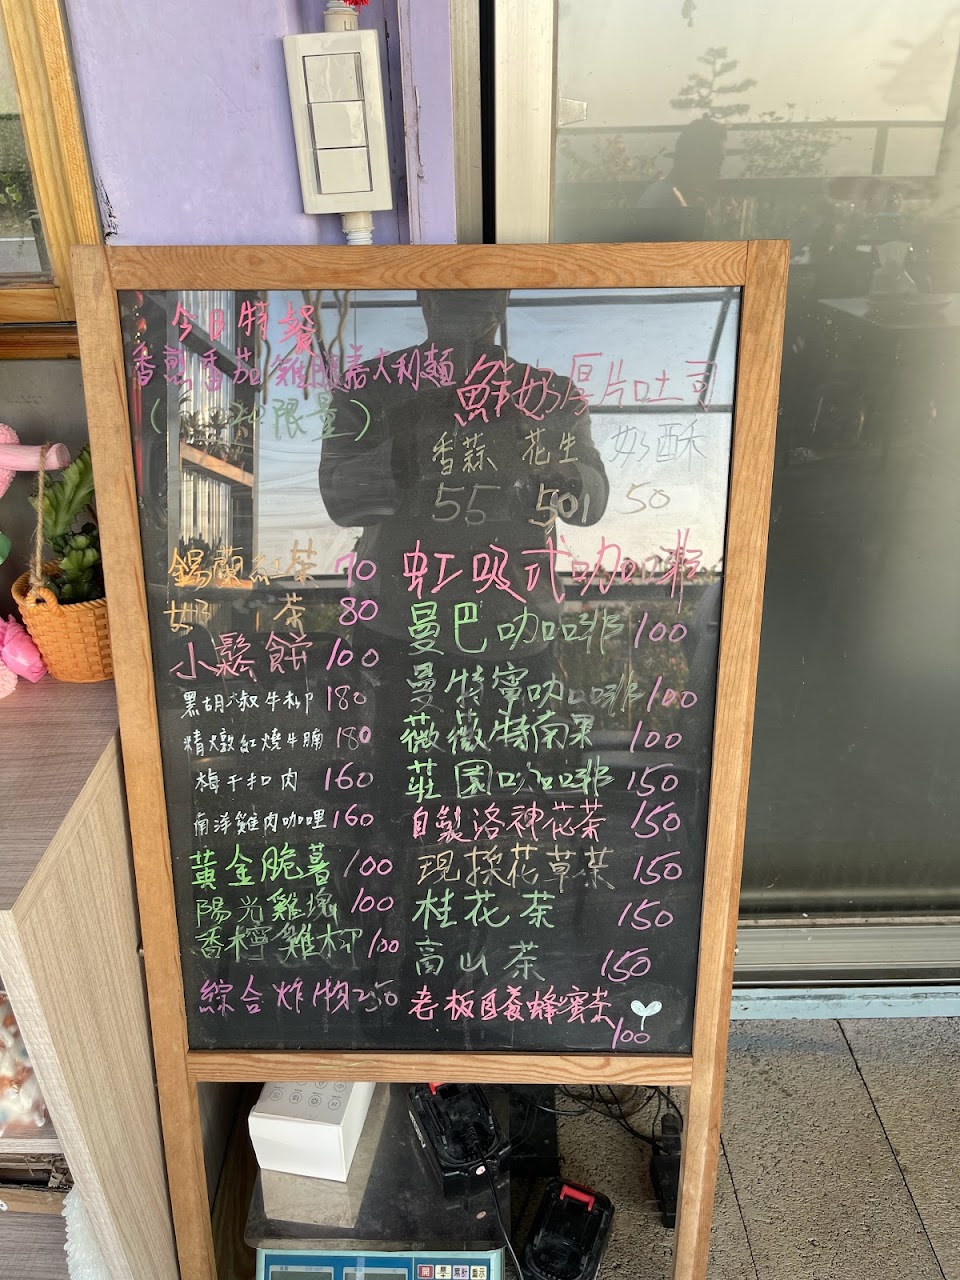 今日特餐
香煎番茄雞腿義大利麵
限量)
鮮奶厚片吐司
香蒜 花生 奶酥
55 50 50
錫蘭紅茶 70
奶 茶 80
小鬆餅 100
黑胡椒牛柳 180
精燉紅燒牛腩 180
梅干扣肉 160
南洋雞肉咖哩 160
黃金脆薯 100
陽光雞塊 100
香檸雞柳 100
綜合炸物 250
虹吸式咖啡
曼巴咖啡 100
曼特寧咖啡 100
薇薇特南果 100
莊園咖啡 150
自製洛神花茶 150
現採花草茶 150
桂花茶 150
高山茶 150
老板自養蜂蜜茶
100